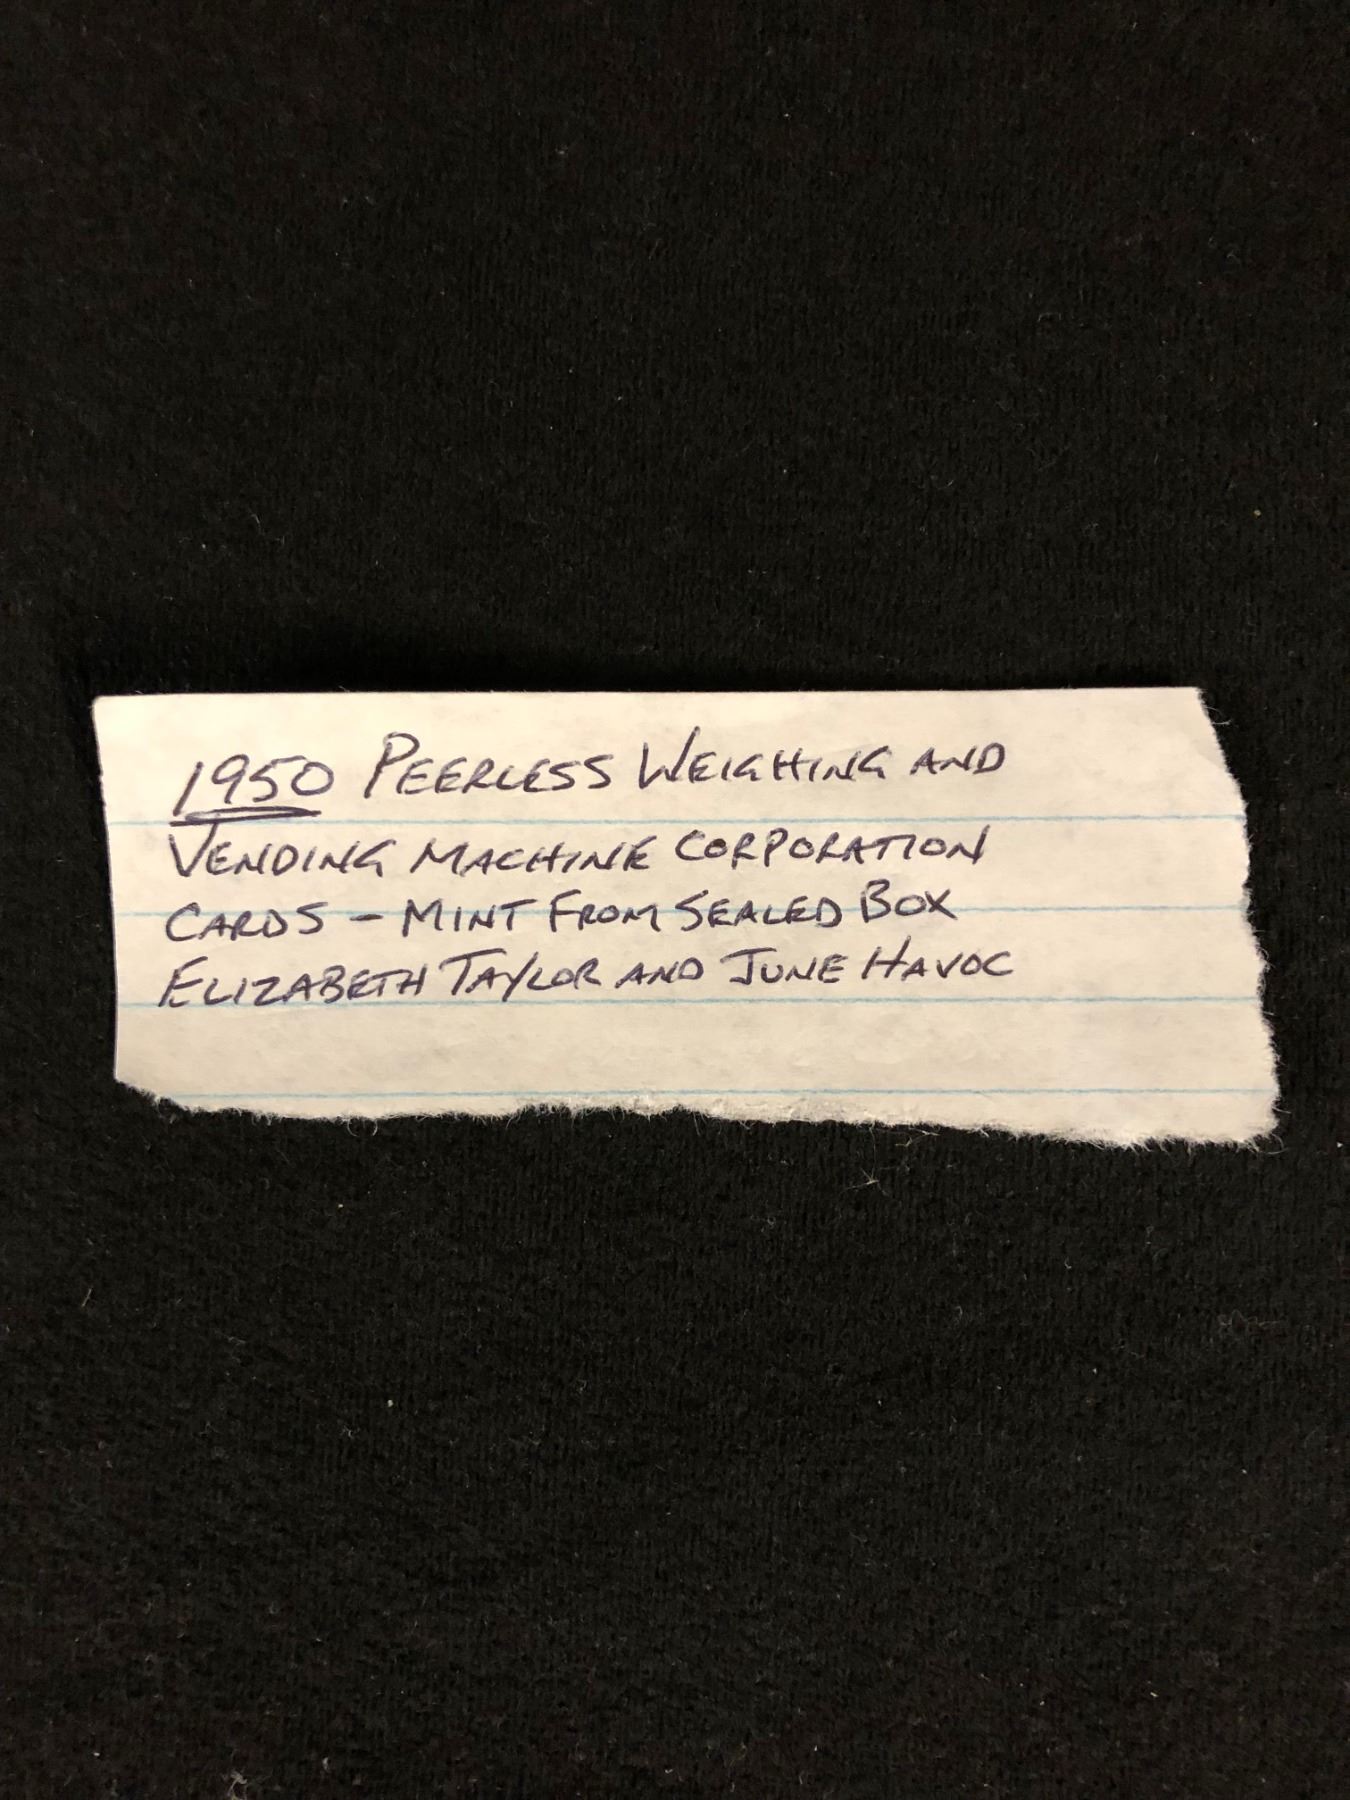 1950 PEERLESS WEIGHING AND
VENDING MACHINE CORPORATION
CARDS - MINT FROM SEALED BOX
ELIZABETH TAYLOR AND JUNE HAVOC